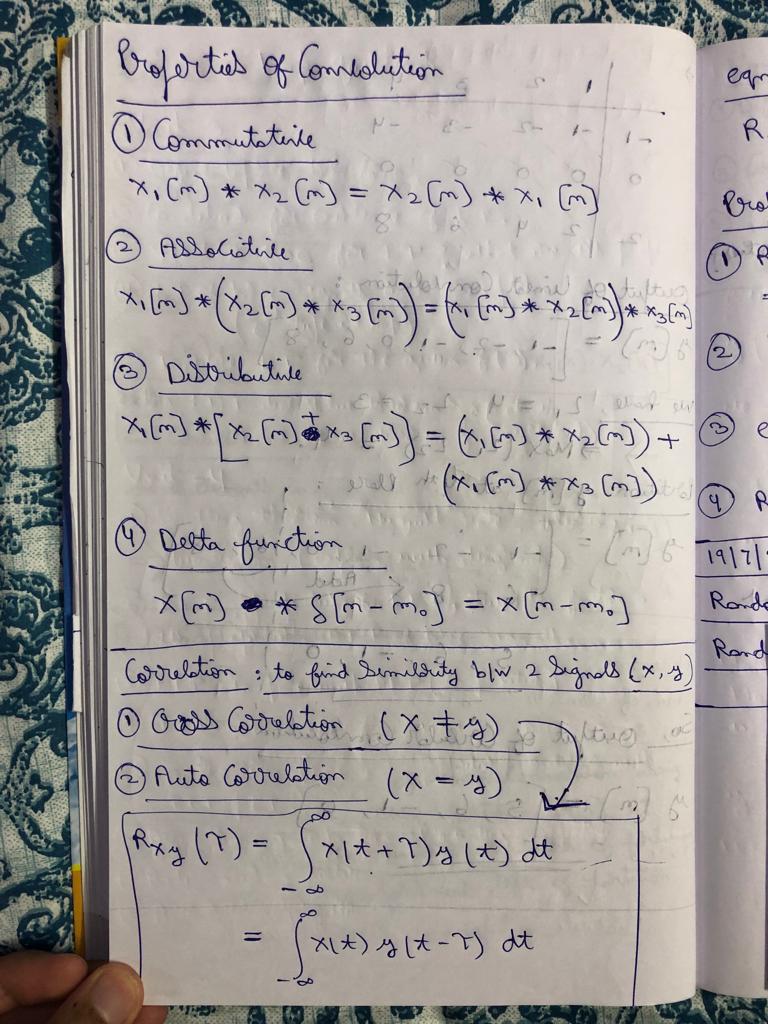 Properties of Convolution
① Commutative
x₁[n] * x₂[n] = x₂[n] * x₁[n]
② Associative
x₁[n] * (x₂[n] * x₃[n]) = (x₁[n] * x₂[n]) * x₃[n]
③ Distributive
x₁[n] * [x₂[n] + x₃[n]] = (x₁[n] * x₂[n]) +
(x₁[n] * x₃[n])
④ Delta function
x[n] * δ[n-n₀] = x[n-n₀]
Correlation : to find Similarity b/w 2 Signals (x, y)
① Cross Correlation (x ≠ y)
② Auto Correlation (x = y)
Rxy(τ) = ∫_{-∞}^{∞} x(t+τ) y(t) dt
= ∫_{-∞}^{∞} x(t) y(t-τ) dt
eqn
R
①
=
②
③
④ R
19/7/
Rando
Rand